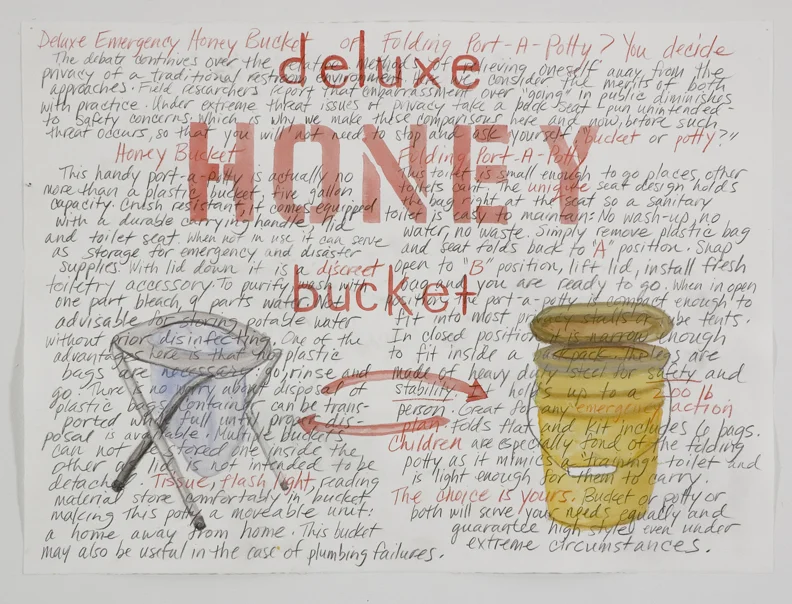 Deluxe Emergency Honey Bucket or Folding Port-A-Potty? You decide
The debate continues over the of relieving oneself away from the
privacy of a traditional restroom environment. we consider merits of both
approaches. Field researchers report that embarrassment over "going" in public diminishes
with practice. Under extreme threat issues of privacy take a back seat [pun unintended-
to safety concerns; which is why we make these comparisons here and now, before such
threat occurs, so that you will not need to stop and ask yourself, "bucket or potty?"
deluxe
HONEY
bucket
Honey Bucket
This handy port-a-potty is actually no
more than a plastic bucket, five gallon
capacity. Crush resistant, it comes equipped
with a durable carrying handle, lid
and toilet seat. When not in use it can serve
as storage for emergency and disaster
supplies. With lid down it is a discreet
toiletry accessory. To purify with
one part bleach, 9 parts water. Not
advisable for storing potable water
without prior disinfecting. One of the
advantages here is that no plastic
bags are necessary: go, rinse and
go. There is no worry about disposal of
plastic bags. Contain can be trans-
ported when full until proper dis-
posal is available. Multiple buckets
can not be stored one inside the
other as lid is not intended to be
detached. Tissue, flash light, reading
material store comfortably in bucket
making this potty a moveable unit:
a home away from home. This bucket
may also be useful in the case of plumbing failures.
Folding Port-A-Potty
This toilet is small enough to go places, other
toilets can't. The unique seat design holds
the bag tight at the seat so a sanitary
toilet is easy to maintain: No wash-up, no
water, no waste. Simply remove plastic bag
and seat folds back to "A" position. Snap
open to "B" position, lift lid, install fresh
bag and you are ready to go. When in open
position the port-a-potty is compact enough to
fit into most privacy stalls or tube tents.
In closed position it is narrow enough
to fit inside a backpack. The legs are
made of heavy duty steel for safety and
stability. It holds up to a 200 lb
person. Great for any emergency action
plan. Folds flat and kit includes 6 bags.
Children are especially fond of the folding
potty as it mimics a "training" toilet and
is light enough for them to carry.
The choice is yours. Bucket or potty or
both will serve your needs equally and
guarantee high style, even under
extreme circumstances.